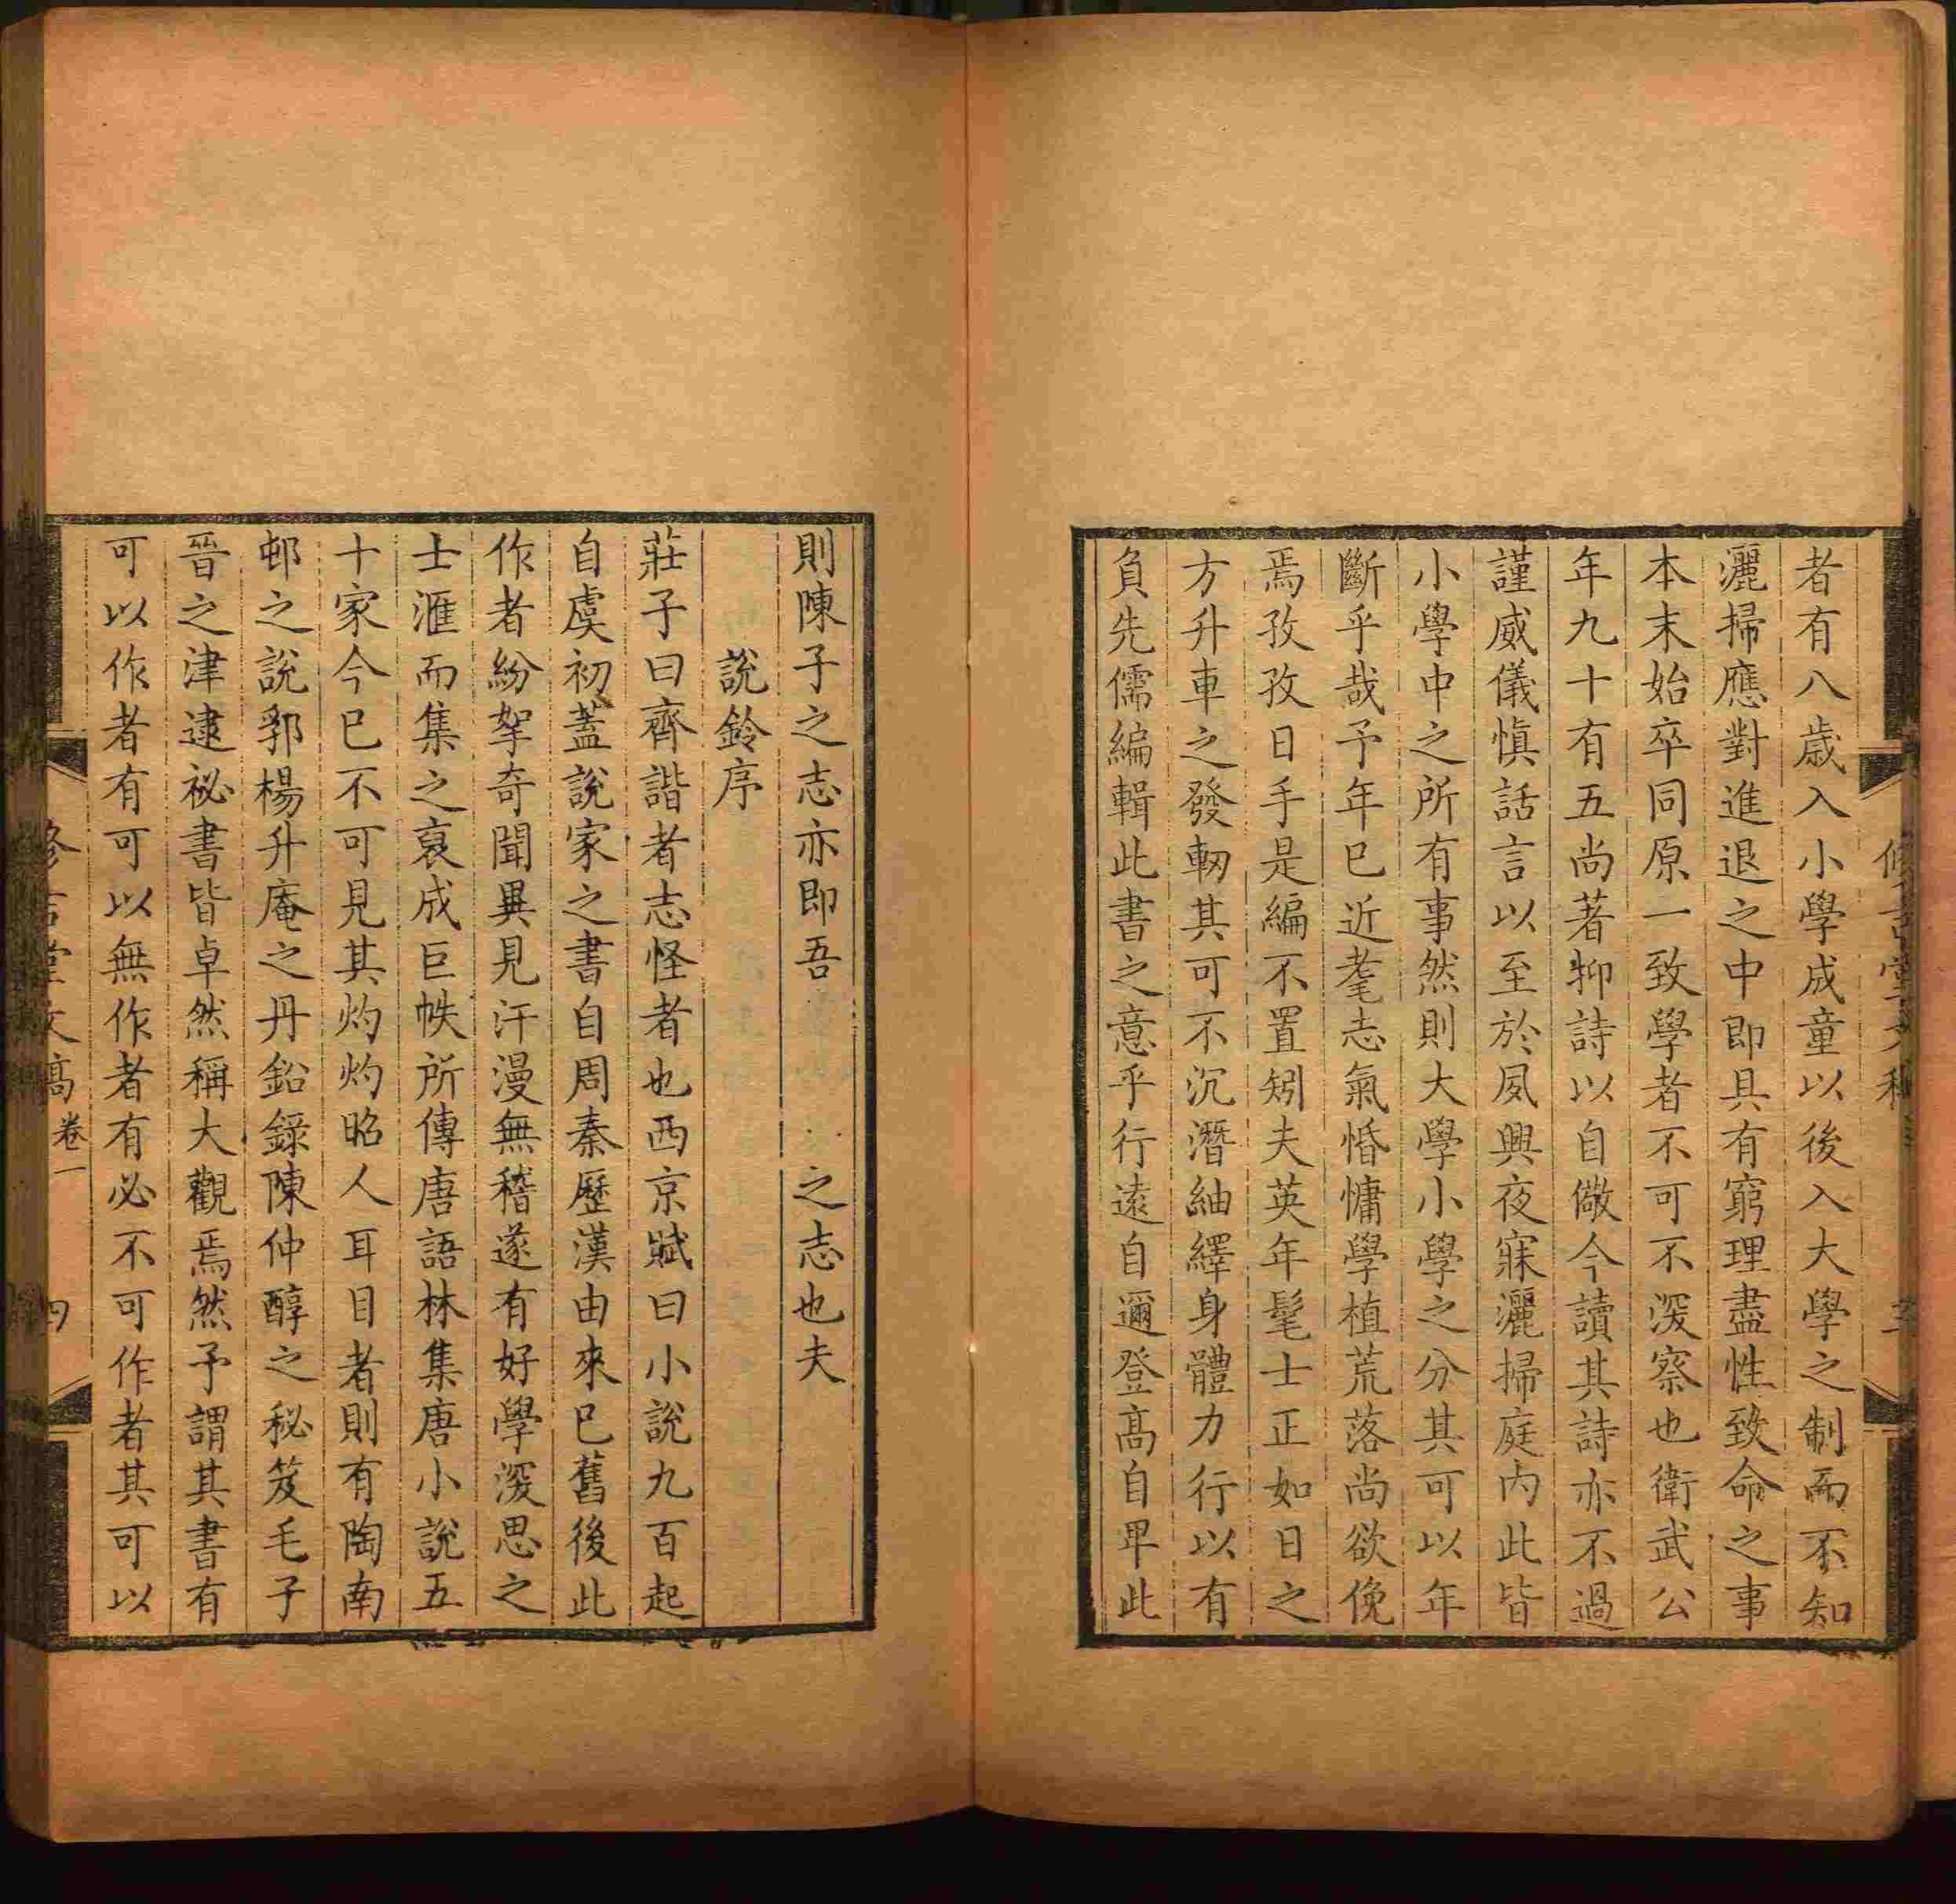 者有八歲入小學成童以後入大學之制而不知
灑掃應對進退之中即具有窮理盡性致命之事
本末始卒同原一致學者不可不深察也衛武公
年九十有五尚著抑詩以自儆今讀其詩亦不過
謹威儀慎話言以至於夙興夜寐灑掃庭內此皆
小學中之所有事然則大學小學之分其可以年
斷乎哉予年已近耄志氣惛慵學植荒落尚欲俛
焉孜孜日手是編不置矧夫英年髦士正如日之
方升車之發軔其可不沉潛紬繹身體力行以有
負先儒編輯此書之意乎行遠自邇登高自卑此
則陳子之志亦即吾 之志也夫
說鈴序
莊子曰齊諧者志怪者也西京賦曰小說九百起
自虞初蓋說家之書自周秦歷漢由來已舊後此
作者紛挐奇聞異見汗漫無稽遂有好學深思之
士滙而集之裒成巨帙所傳唐語林集唐小說五
十家今已不可見其灼灼昭人耳目者則有陶南
邨之說郛楊升庵之丹鉛錄陳仲醇之秘笈毛子
晉之津逮祕書皆卓然稱大觀焉然予謂其書有
可以作者有可以無作者有必不可作者其可以
修吉堂文稿 卷一 四